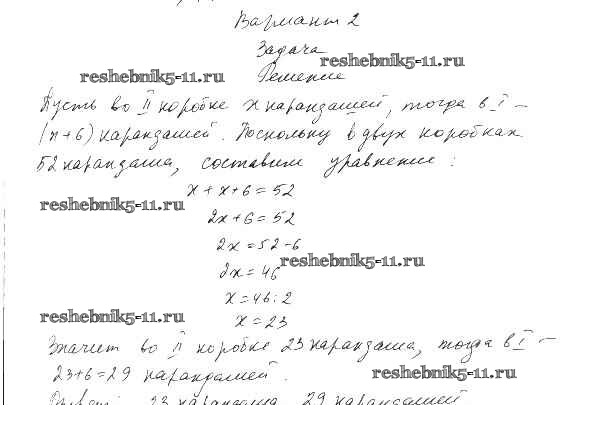 Вариант 2
Задача
reshebnik5-11.ru
reshebnik5-11.ru
Решение
Пусть во II коробке x карандашей, тогда в I –
(x+6) карандашей. Поскольку в двух коробках
52 карандаша, составим уравнение:
x + x + 6 = 52
reshebnik5-11.ru
2x + 6 = 52
2x = 52 - 6
reshebnik5-11.ru
2x = 46
x = 46 : 2
reshebnik5-11.ru
x = 23
Значит во II коробке 23 карандаша, тогда в I –
23+6=29 карандашей.
reshebnik5-11.ru
23 карандаша, 29 карандашей